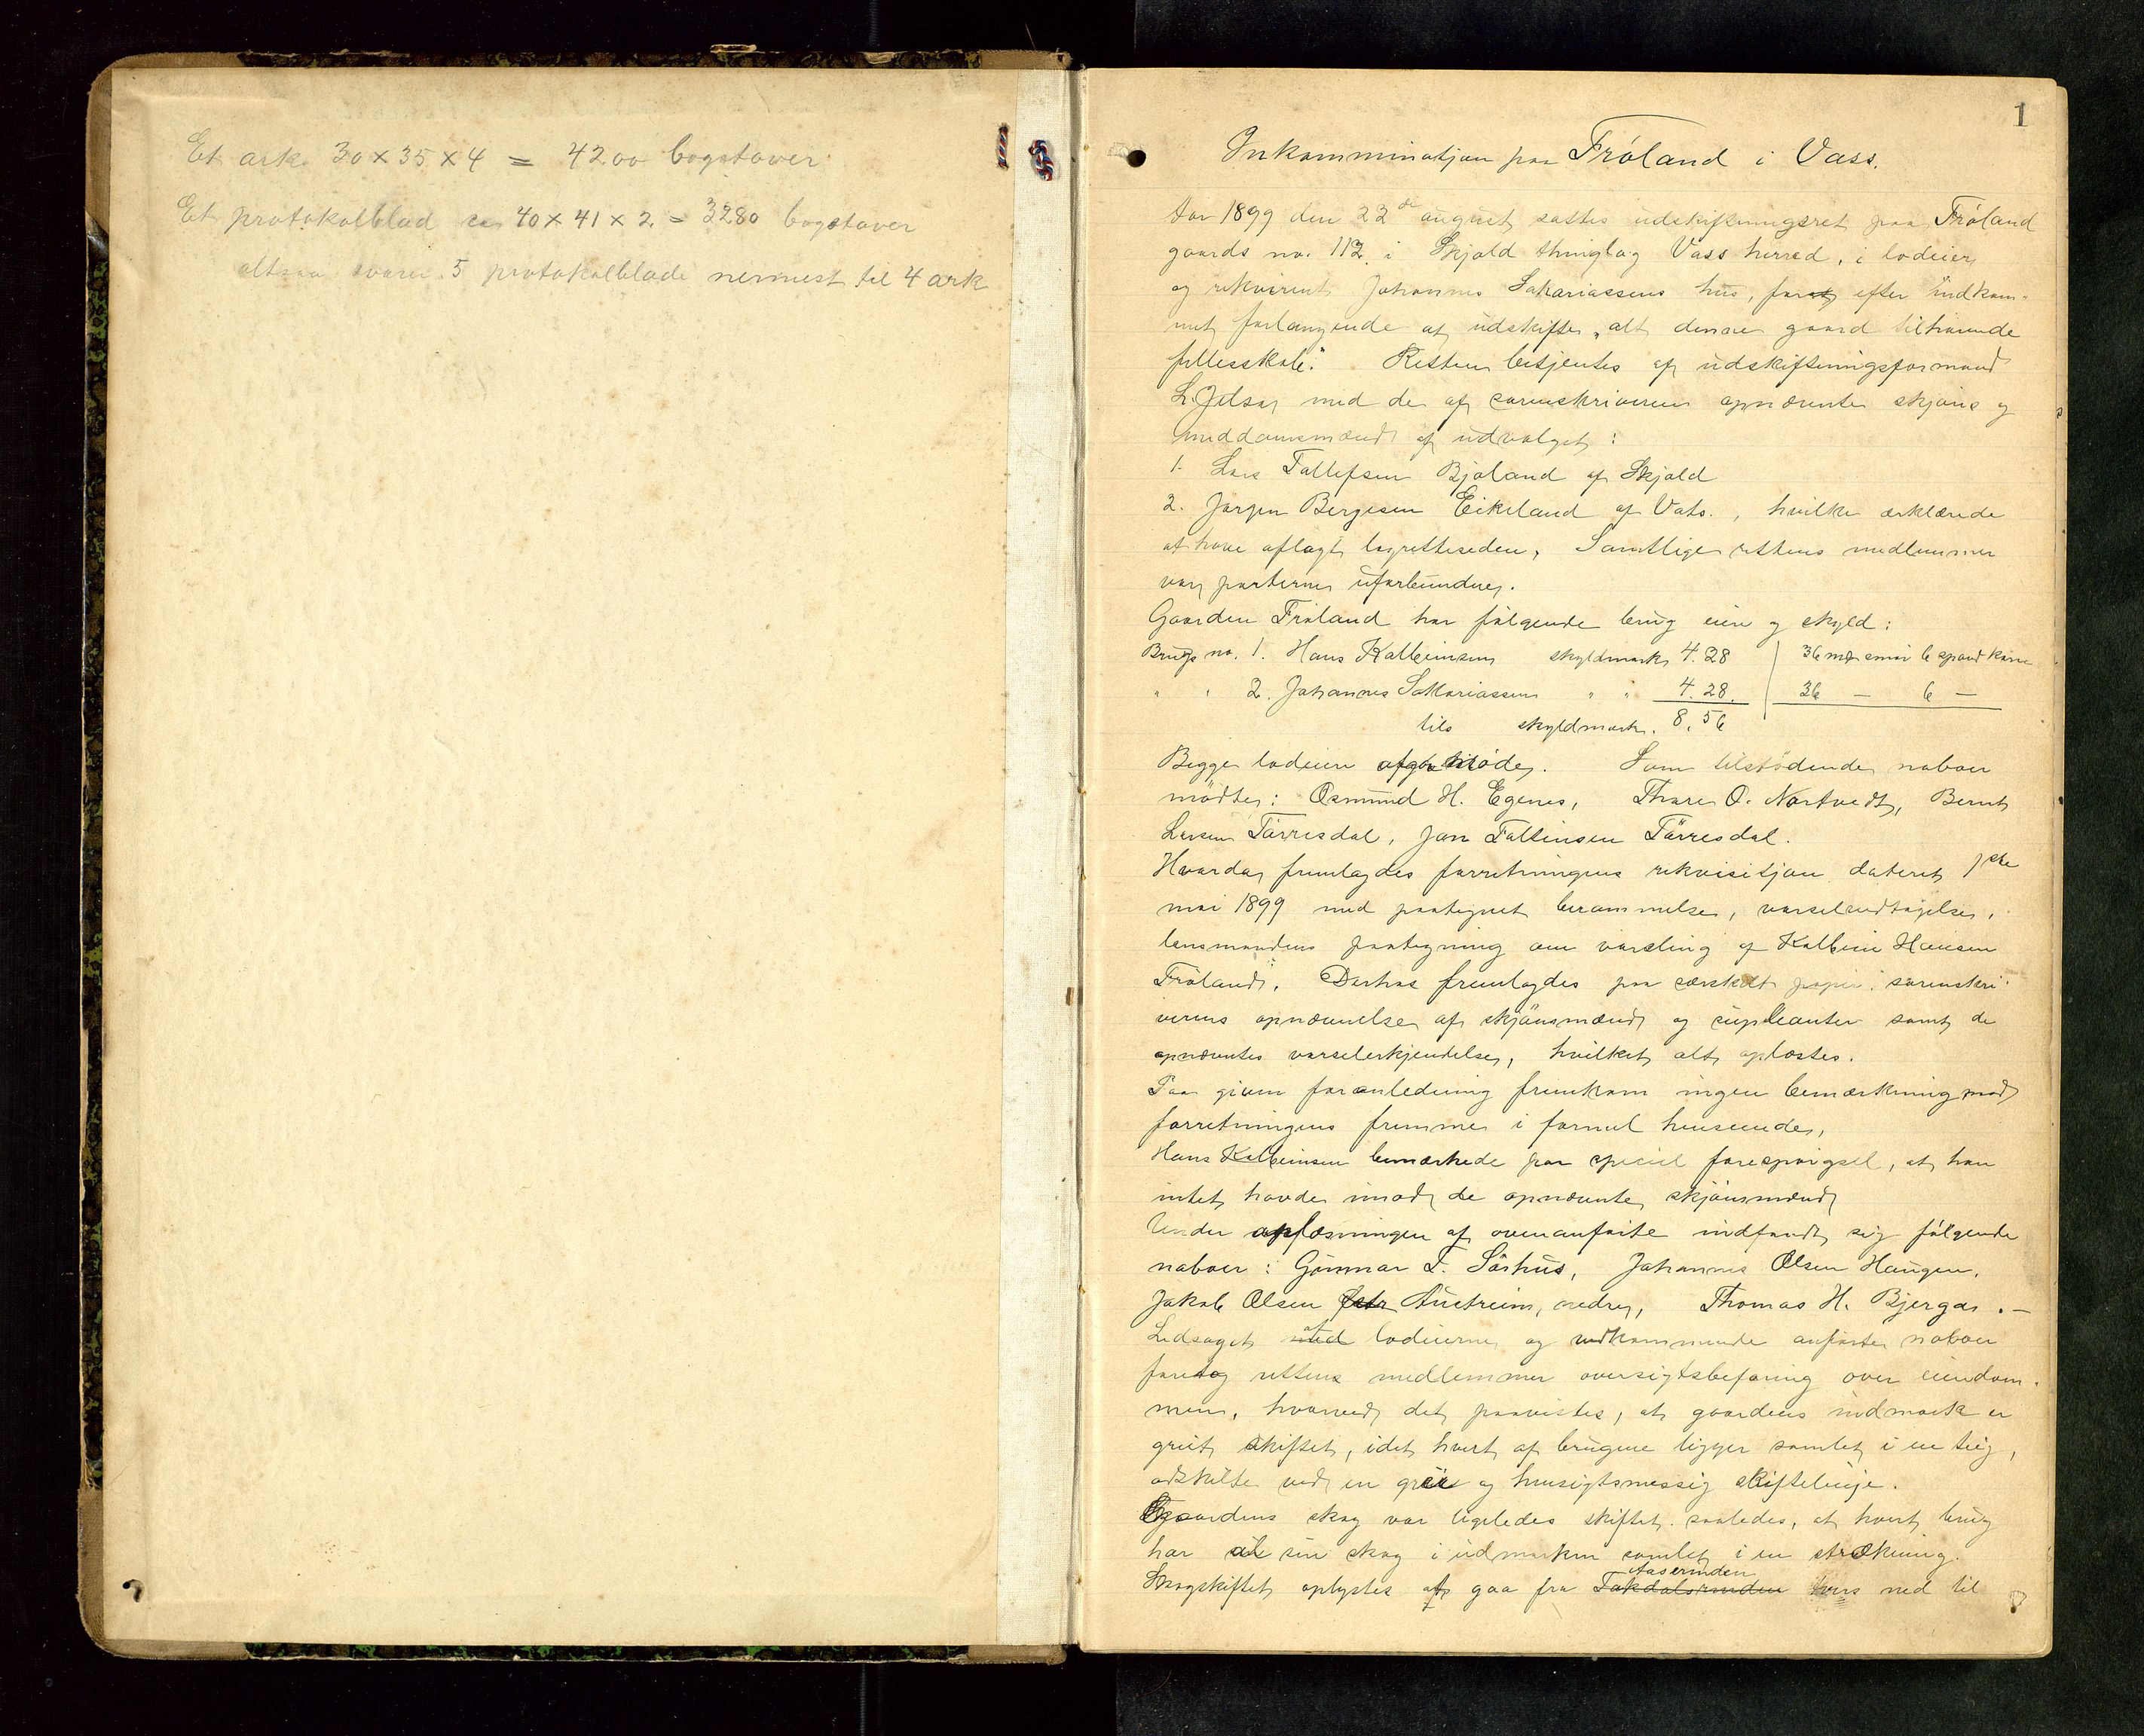 Et ark 30 x 35 x 4 = 4200 bogstaver
Et protokolblad ca 40 x 41 x 2 = 3280 bogstaver
altsaa svarer 5 protokolblade nermest til 4 ark
1
Inkamminatjon paa Fröland i Vass.
Aar 1899 den 22de august sattes udskiftningsret paa Fröland
gaards no. 112 i Skjold thinglag Vass herred, i lodeier
og rekvirent Johannes Sakariassens hus, efter indkom-
met forlangende at udskifte "alt denne gaard tilhörende
fellesskab". Retten betjentes af udskiftningsformand
L. Jelsa med de af sorenskriveren opnævnte skjöns og
meddomsmænd af udvalget:
1. Lars Tollefsen Bjoland af Skjold
2. Jorgen Bergesen Eikeland af Vats., hvilke erklærede
at have aflagt lagretteseden, Samtlige rettens medlemmer
var parterne uforbundne.
Gaarden Fröland har fölgende brug eiere og skyld:
Brugs no. 1. Hans Kolbeinsen skyldmark 4.28 | 36 mrk smör 6 spand korn
" " 2. Johannes Sakariassen " " 4.28. | 36 — 6 —
tils skyldmark. 8,56
Begge lodeiere möde. Som tilstödende naboer
mödte: Osmund H. Egenes, Thore O. Nortvedt, Bernt
Larsen Törresdal, Jan Tolleinsen Törresdal.
Hvorda fremlagdes forretningens rekvisitjon dateret 1ste
mai 1899 med paategnet berammelse, varseludtagelse,
lensmandens paategning om varsling af Kolbein Hansen
Fröland. Derhos fremlagdes paa særskilt papir sorenskri-
verens opnævnelse af skjönsmænd og supleanter samt de
opnævntes varselerkjendelse, hvilket alt oplæstes.
Paa given foranledning fremkom ingen bemærkning mod
forretningens fremme i formel henseende,
Hans Kolbeinsen bemærkede paa speciel forespörgsel, at han
intet havde imod de opnævnte skjönsmænd
Under oplæsningen af ovenanförte indfandt sig fölgende
naboer: Gunnar T. Sörhus, Johannes Olsen Haugen,
Jakob Olsen Austreim, nedre, Thomas H. Bjerga. —
Ledsaget af lodeierne og vedkommende anförte naboer
foretog rettens medlemmer oversigtsbefaring over eiendom-
men, hvorved det paavistes, at gaardens indmark er
greit skiftet, idet hvert af brugene ligger samlet i en teig,
adskilte ved en grei og hensigtsmessig skiftelinje.
Gaardens skog var ligeledes skiftet saaledes, at hvert brug
har al sin skog i udmarken samlet i en strækning.
Skogskiftet oplystes at gaa fra Aaserinden ned til